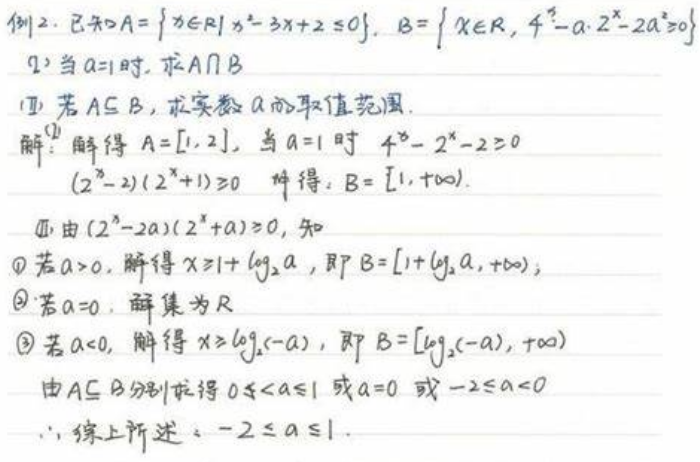 例2. 已知A={x∈R|x²-3x+2≤0}, B={x∈R, 4ˣ-a·2ˣ-2a²≥0}
(I) 当a=1时, 求A∩B
(II) 若A⊆B, 求实数a的取值范围.
解:(I) 解得 A=[1,2], 当a=1时 4ˣ-2ˣ-2≥0
(2ˣ-2)(2ˣ+1)≥0 解得: B=[1,+∞).
(II) 由(2ˣ-2a)(2ˣ+a)≥0, 知
① 若a>0, 解得 x≥1+log₂a, 即 B=[1+log₂a, +∞);
② 若a=0, 解集为R
③ 若a<0, 解得 x≥log₂(-a), 即 B=[log₂(-a), +∞)
由A⊆B分别求得 0<a≤1 或a=0 或 -2≤a<0
∴ 综上所述: -2≤a≤1.